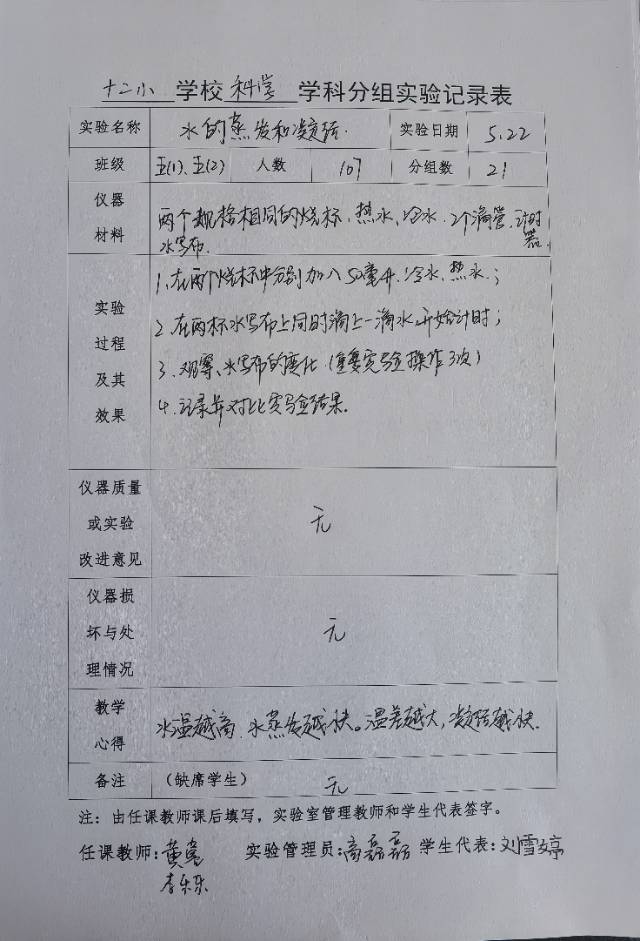 十二小 学校 科学 学科分组实验记录表
实验名称 水的蒸发和凝结. 实验日期 5.22
班级 五(1)、五(2) 人数 107 分组数 21
仪器材料 两个规格相同的烧杯、热水、冷水、2个滴管、计时器、
水写布.
实验过程及其效果 1、在两个烧杯中分别加入50毫升、冷水、热水;
2、在两杯水写布上同时滴上一滴水开始计时;
3、观察水写布的变化(重要实验操作3次)
4、记录并对比实验结果.
仪器质量或实验改进意见 无
仪器损坏与处理情况 无
教学心得 水温越高,水蒸发越快。温差越大,凝结越快.
备注 (缺席学生) 无
注:由任课教师课后填写,实验室管理教师和学生代表签字。
任课教师:黄 实验管理员:高磊磊 学生代表:刘雪婷
李乐乐